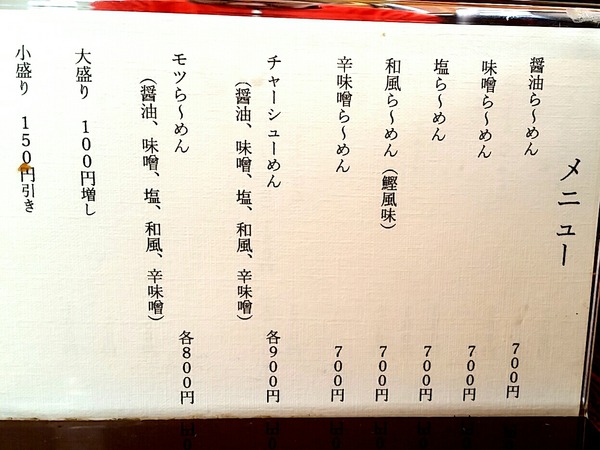 メニュー
醤油ら～めん　700円
味噌ら～めん　700円
塩ら～めん　700円
和風ら～めん（鰹風味）　700円
辛味噌ら～めん　700円
チャーシューめん
（醤油、味噌、塩、和風、辛味噌）　各900円
モツら～めん
（醤油、味噌、塩、和風、辛味噌）　各800円
大盛り　100円増し
小盛り　150円引き